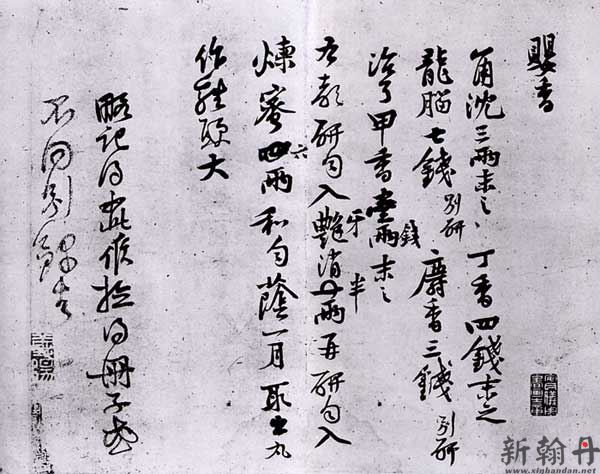 嬰香
角沈三兩末之丁香四錢末之
龍腦七錢別研麝香三錢別研
治了甲香壹兩錢末之
右都研勻入艷消牙半兩再研勻入
煉蜜四六兩和勻蔭一月取出丸
作雞頭大
略記得如此候檢得冊子或
不同別錄去
新翰丹
www.xinhandan.net